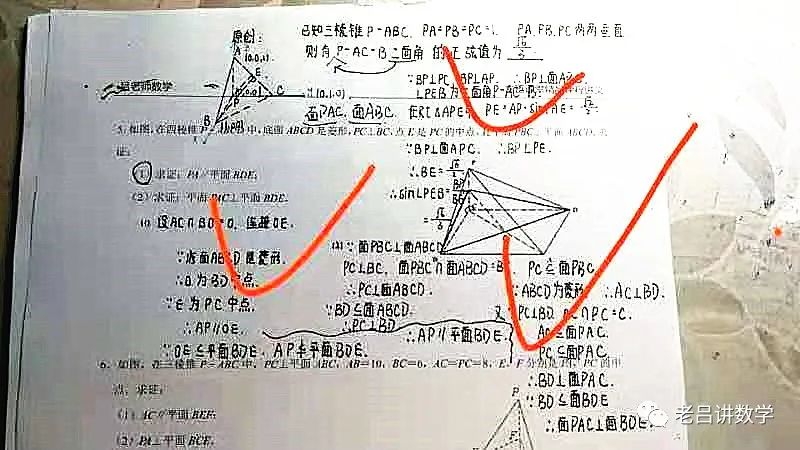 原创:
已知三棱锥P-ABC, PA=PB=PC=1, PA、PB、PC两两垂直
则有P-AC-B二面角的正弦值为
A (0,0,1)
E
(0,0,0) C (0,1,0)
P
B (1,0,0)
∵BP⊥PC, BP⊥AP. ∴BP⊥面APC
∠PEB为二面角P-AC-B
面PAC, 面ABC. 在Rt△APE中, PE=AP·sin∠AE=
5. 如图, 在四棱锥P-ABCD中, 底面ABCD是菱形, PC⊥BC, 点E是PC的中点, 且平面PBC⊥平面ABCD. 求
证:
∵BP⊥面APC, ∴BP⊥PE.
(1) 求证: PA∥平面BDE;
∴BE=
(2) 求证: 平面PAC⊥平面BDE.
∴sin∠PEB=
(1). 设AC∩BD=O, 连接OE.
∵底面ABCD是菱形.
∴O为BD中点.
∵E为PC中点.
∴AP∥OE.
∵OE⊆平面BDE, AP⊄平面BDE.
∴AP∥平面BDE.
∵面PBC⊥面ABCD
PC⊥BC, 面PBC∩面ABCD=BC, PC⊆面PBC
∴PC⊥面ABCD.
∵BD⊆面ABCD.
∴PC⊥BD
∵ABCD为菱形 ∴AC⊥BD.
又PC⊥BD AC∩PC=C.
AC⊆面PAC
PC⊆面PAC
∴BD⊥面PAC.
∵BD⊆面BDE
∴面PAC⊥面BDE.
6. 如图, 在三棱锥P-ABC中, PC⊥平面ABC, AB=10, BC=6, AC=PC=8, E、F分别是PA、PC的中
点, 求证:
(1) AC∥平面BEF;
(2) PA⊥平面BCE.
P
老吕讲数学